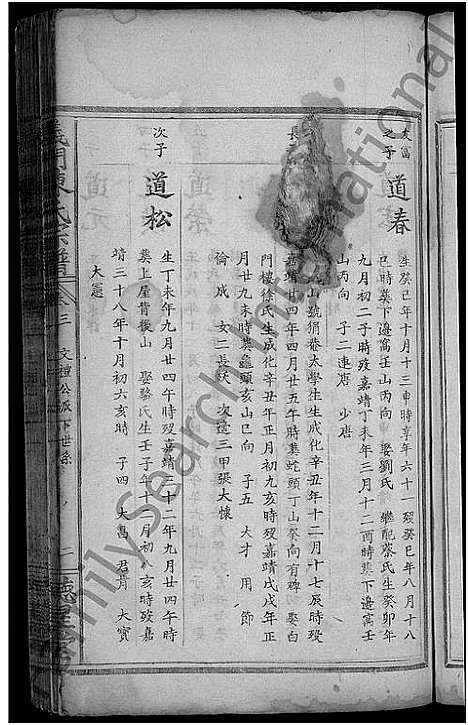 友富
之子
道春
生癸巳年十月十三申時享年六十一歿癸巳年八月十八
巳時葬下邊窩壬山丙向 娶劉氏 繼配蔡氏生癸卯年
九月初二子時歿嘉靖丁未年三月十二酉時葬下邊窩壬
山丙向 子二連唐 少唐
長
山號狷菴太學生生成化辛丑年十二月十七辰時歿
嘉靖廿四年四月廿五午時葬蛇頭丁山癸向有碑 娶白
門樓徐氏生成化辛丑年正月初九亥時歿嘉靖戊戌年正
月廿九未時葬龜頭亥山巳向 子五 大才 用 節
倫 成 女二長妖 次適三甲張大懷
次子
道松
生丁未年九月廿四午時歿嘉靖三十二年九月廿四午時
葬上屋背後山 娶黎氏生壬子十一月初八亥時歿嘉
靖三十八年十月初六亥時 子四 大富 君肖 大寶
大憲
義門陳氏宗譜
卷三 文種公派下世系
德星堂
FamilySearch International